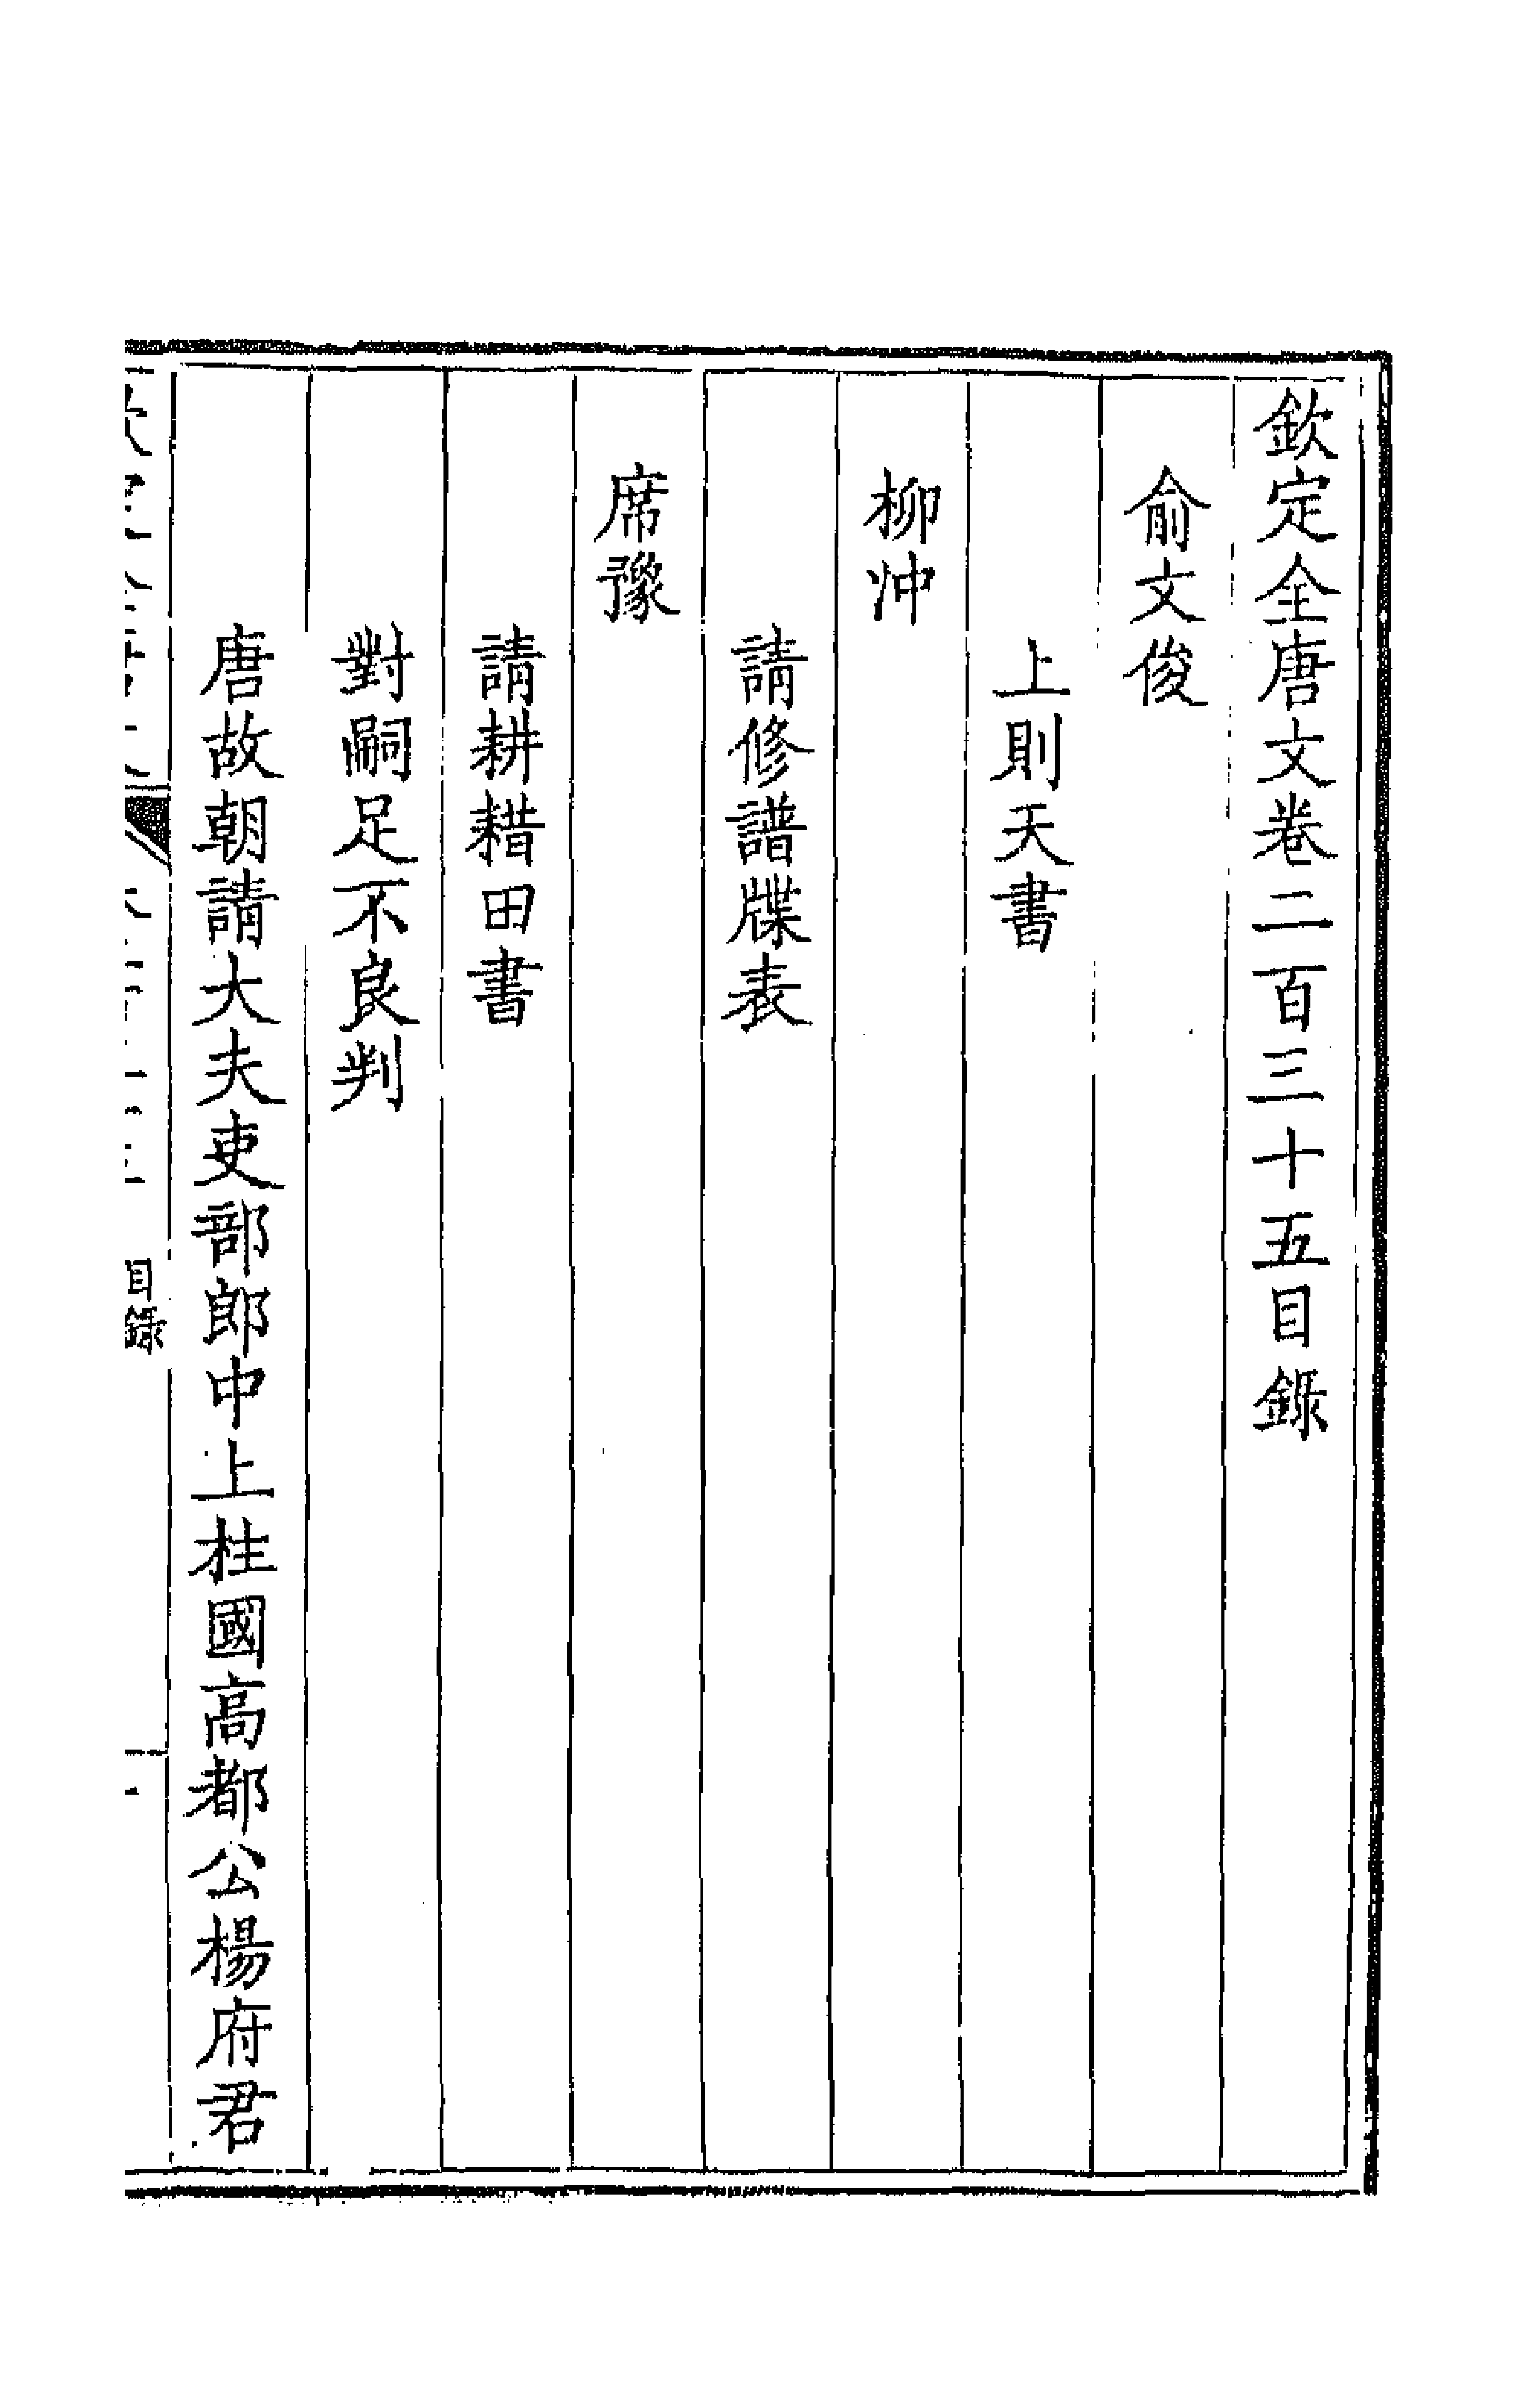 欽定全唐文卷二百三十五目錄
俞文俊
上則天書
柳沖
請修譜牒表
席豫
請耕耤田書
對嗣足不良判
唐故朝請大夫吏部郎中上柱國高都公楊府君
目錄